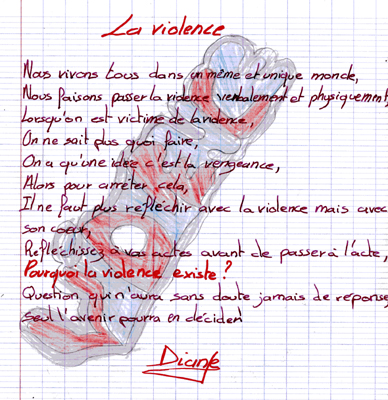 La violence
Nous vivons tous dans un même et unique monde,
Nous faisons passer la violence verbalement et physiquement,
Lorsqu'on est victime de la violence,
On ne sait plus quoi faire,
On a qu'une idée c'est la vengeance,
Alors pour arrêter cela,
Il ne faut plus refléchir avec la violence mais avec
son coeur,
Refléchissez à vos actes avant de passer à l'acte,
Pourquoi la violence existe?
Question qui n'aura sans doute jamais de réponse,
Seul l'avenir pourra en décider!